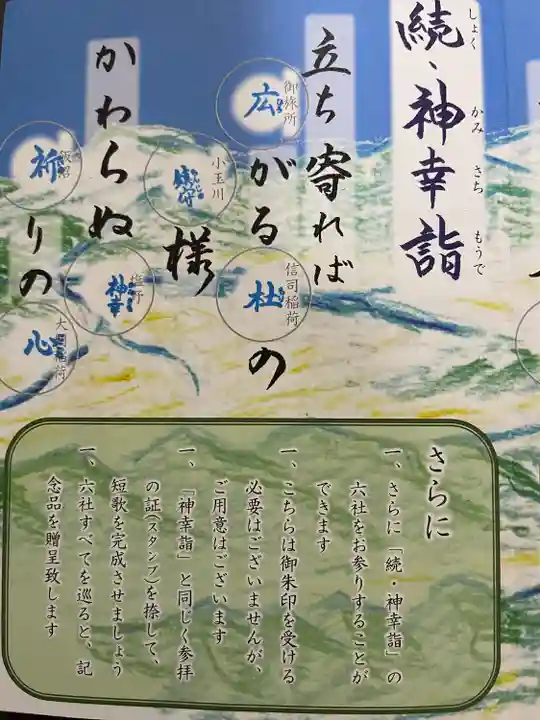 続・神幸詣
しょく かみ さち もうで
立ち寄れば
御旅所
広がる
信司稲荷
杜の
小玉川
様
かわらぬ
塩野
神幸
飯沼
祈りの
心
さらに
一、さらに「続・神幸詣」の
六社をお参りすることが
できます
一、こちらは御朱印を受ける
必要はございませんが、
ご用意はございます
一、「神幸詣」と同じく参拝
の証(スタンプ)を捺して、
短歌を完成させましょう
一、六社すべてを巡ると、記
念品を贈呈致します